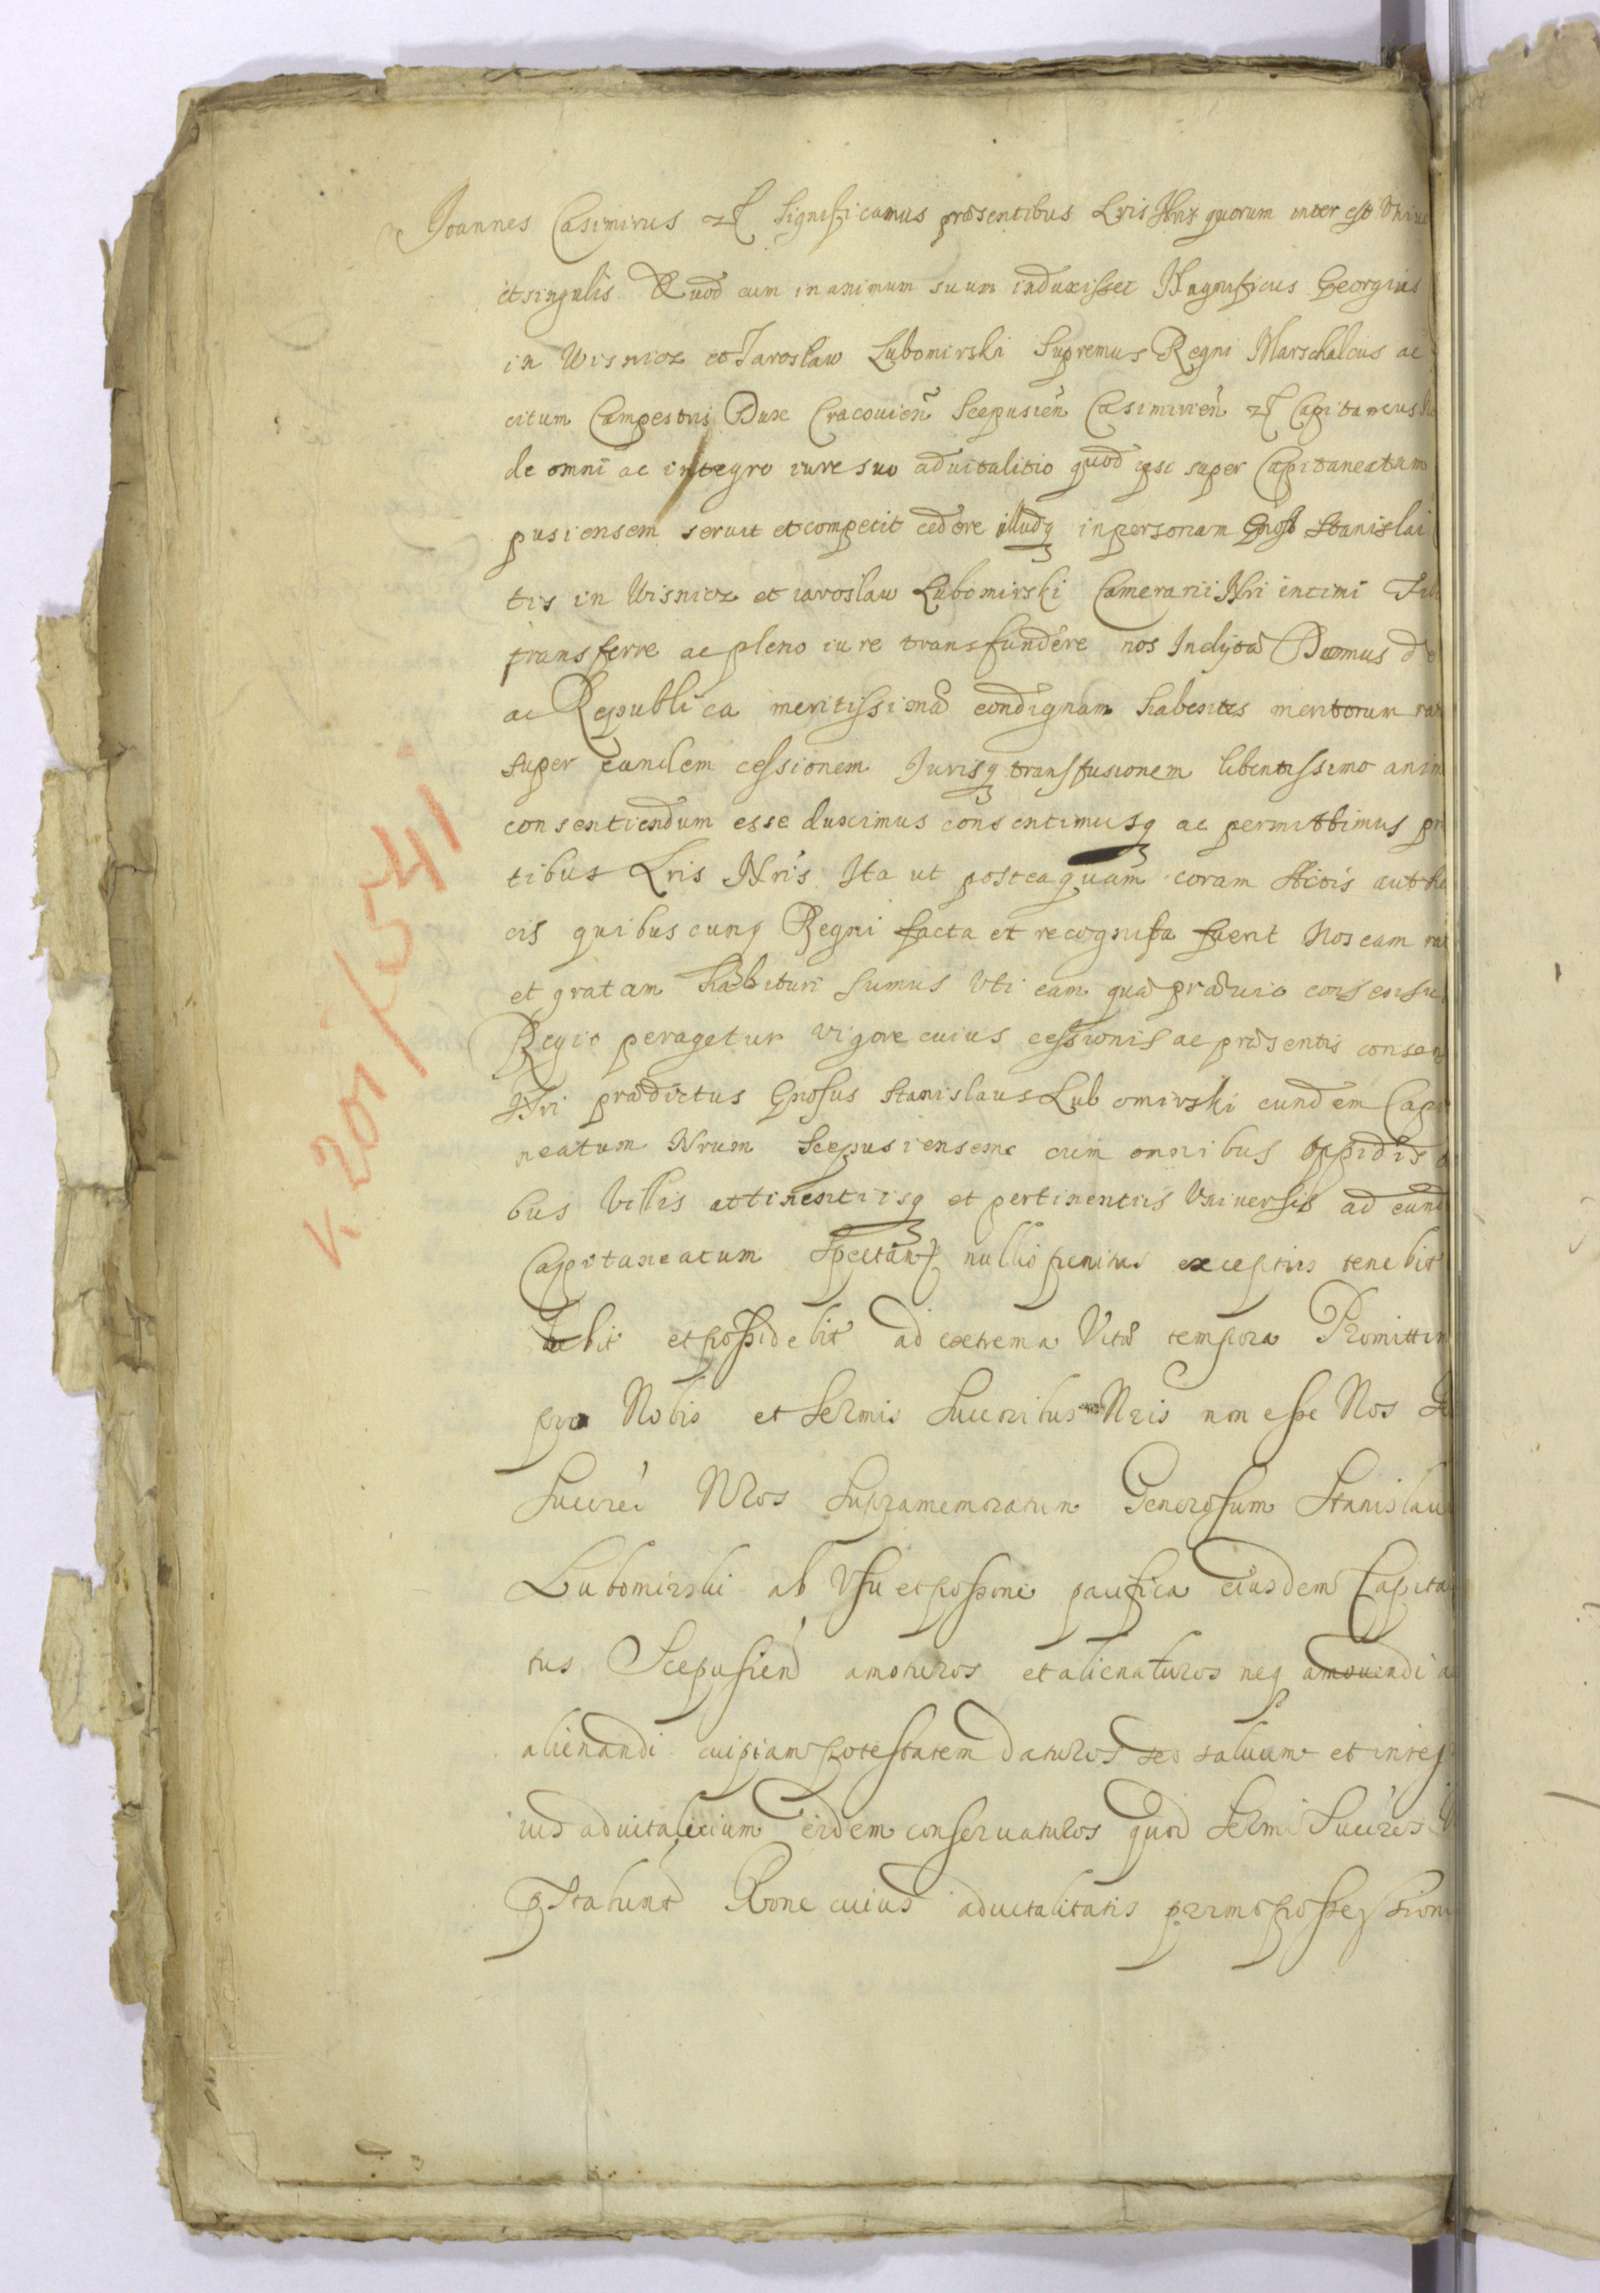 Joannes Casimirus etc Significamus præsentibus Lris Nris quorum inter est Vniue
et singulis Quod cum in animum suum induxisset Magnificus Georgius
in Wisnicz et Jaroslaw Lubomirski Supremus Regni Marschalcus ac
citum Campestris Dux Cracouień Scepusień Casimirień etc Capitaneus
de omni ac integro iure suo aduitalitio quod ipsi super Capitaneatum
pusiensem seruit et competit cedere illudq in personam Gnosi Stanislai
tis in Wisnicz et iaroslaw Lubomirski Camerarii Nri intimi
transferre ac pleno iure transfundere nos Inclytæ Domus de
ac Republica meritissimæ condignam habentes meritorum ra
super eandem cessionem Jurisq transfusionem libentissimo anim
consentiendum esse duximus consentimusq ac permittimus
tibus Lris Nris Ita ut posteaquam coram Actis authe
cis quibuscunq Regni facta et recognita fuerit Nos eam ra
et gratam habituri sumus Vti eam quæ præuio consensu
Regio peragetur vigore cuius cessionis ac præsentis consen
Nri prædictus Gnosus Stanislaus Lubomirski eundem Capi
neatum Nrum Scepusiensem cum omnibus oppidis
bus Villis attinentiisq et pertinentiis Vniuersis ad eund
Capitaneatum Spectan nullis penitus exceptis tenebit
habebit et possidebit ad extrema Vitæ tempora Promittim
pro Nobis et Sermis Succoribus Nris non esse Nos
Succres Nros Supramemoratum Generosum Stanislau
Lubomirski ab Vsu et possone pacifica eiusdem Capita
tus Scepusień amoturos et alienaturos neq amouendi a
alienandi cuipiam potestatem daturos sed saluum et integ
ius aduitalitium eidem conseruaturos quod Sermi Succres
pstabunt Rone cuius aduitalitatis prmo possession
K 201/541